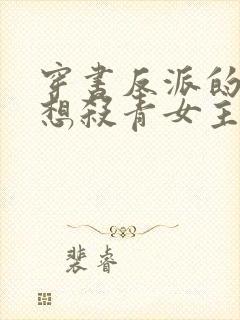 穿书反派的
想殺青女主
裴睿